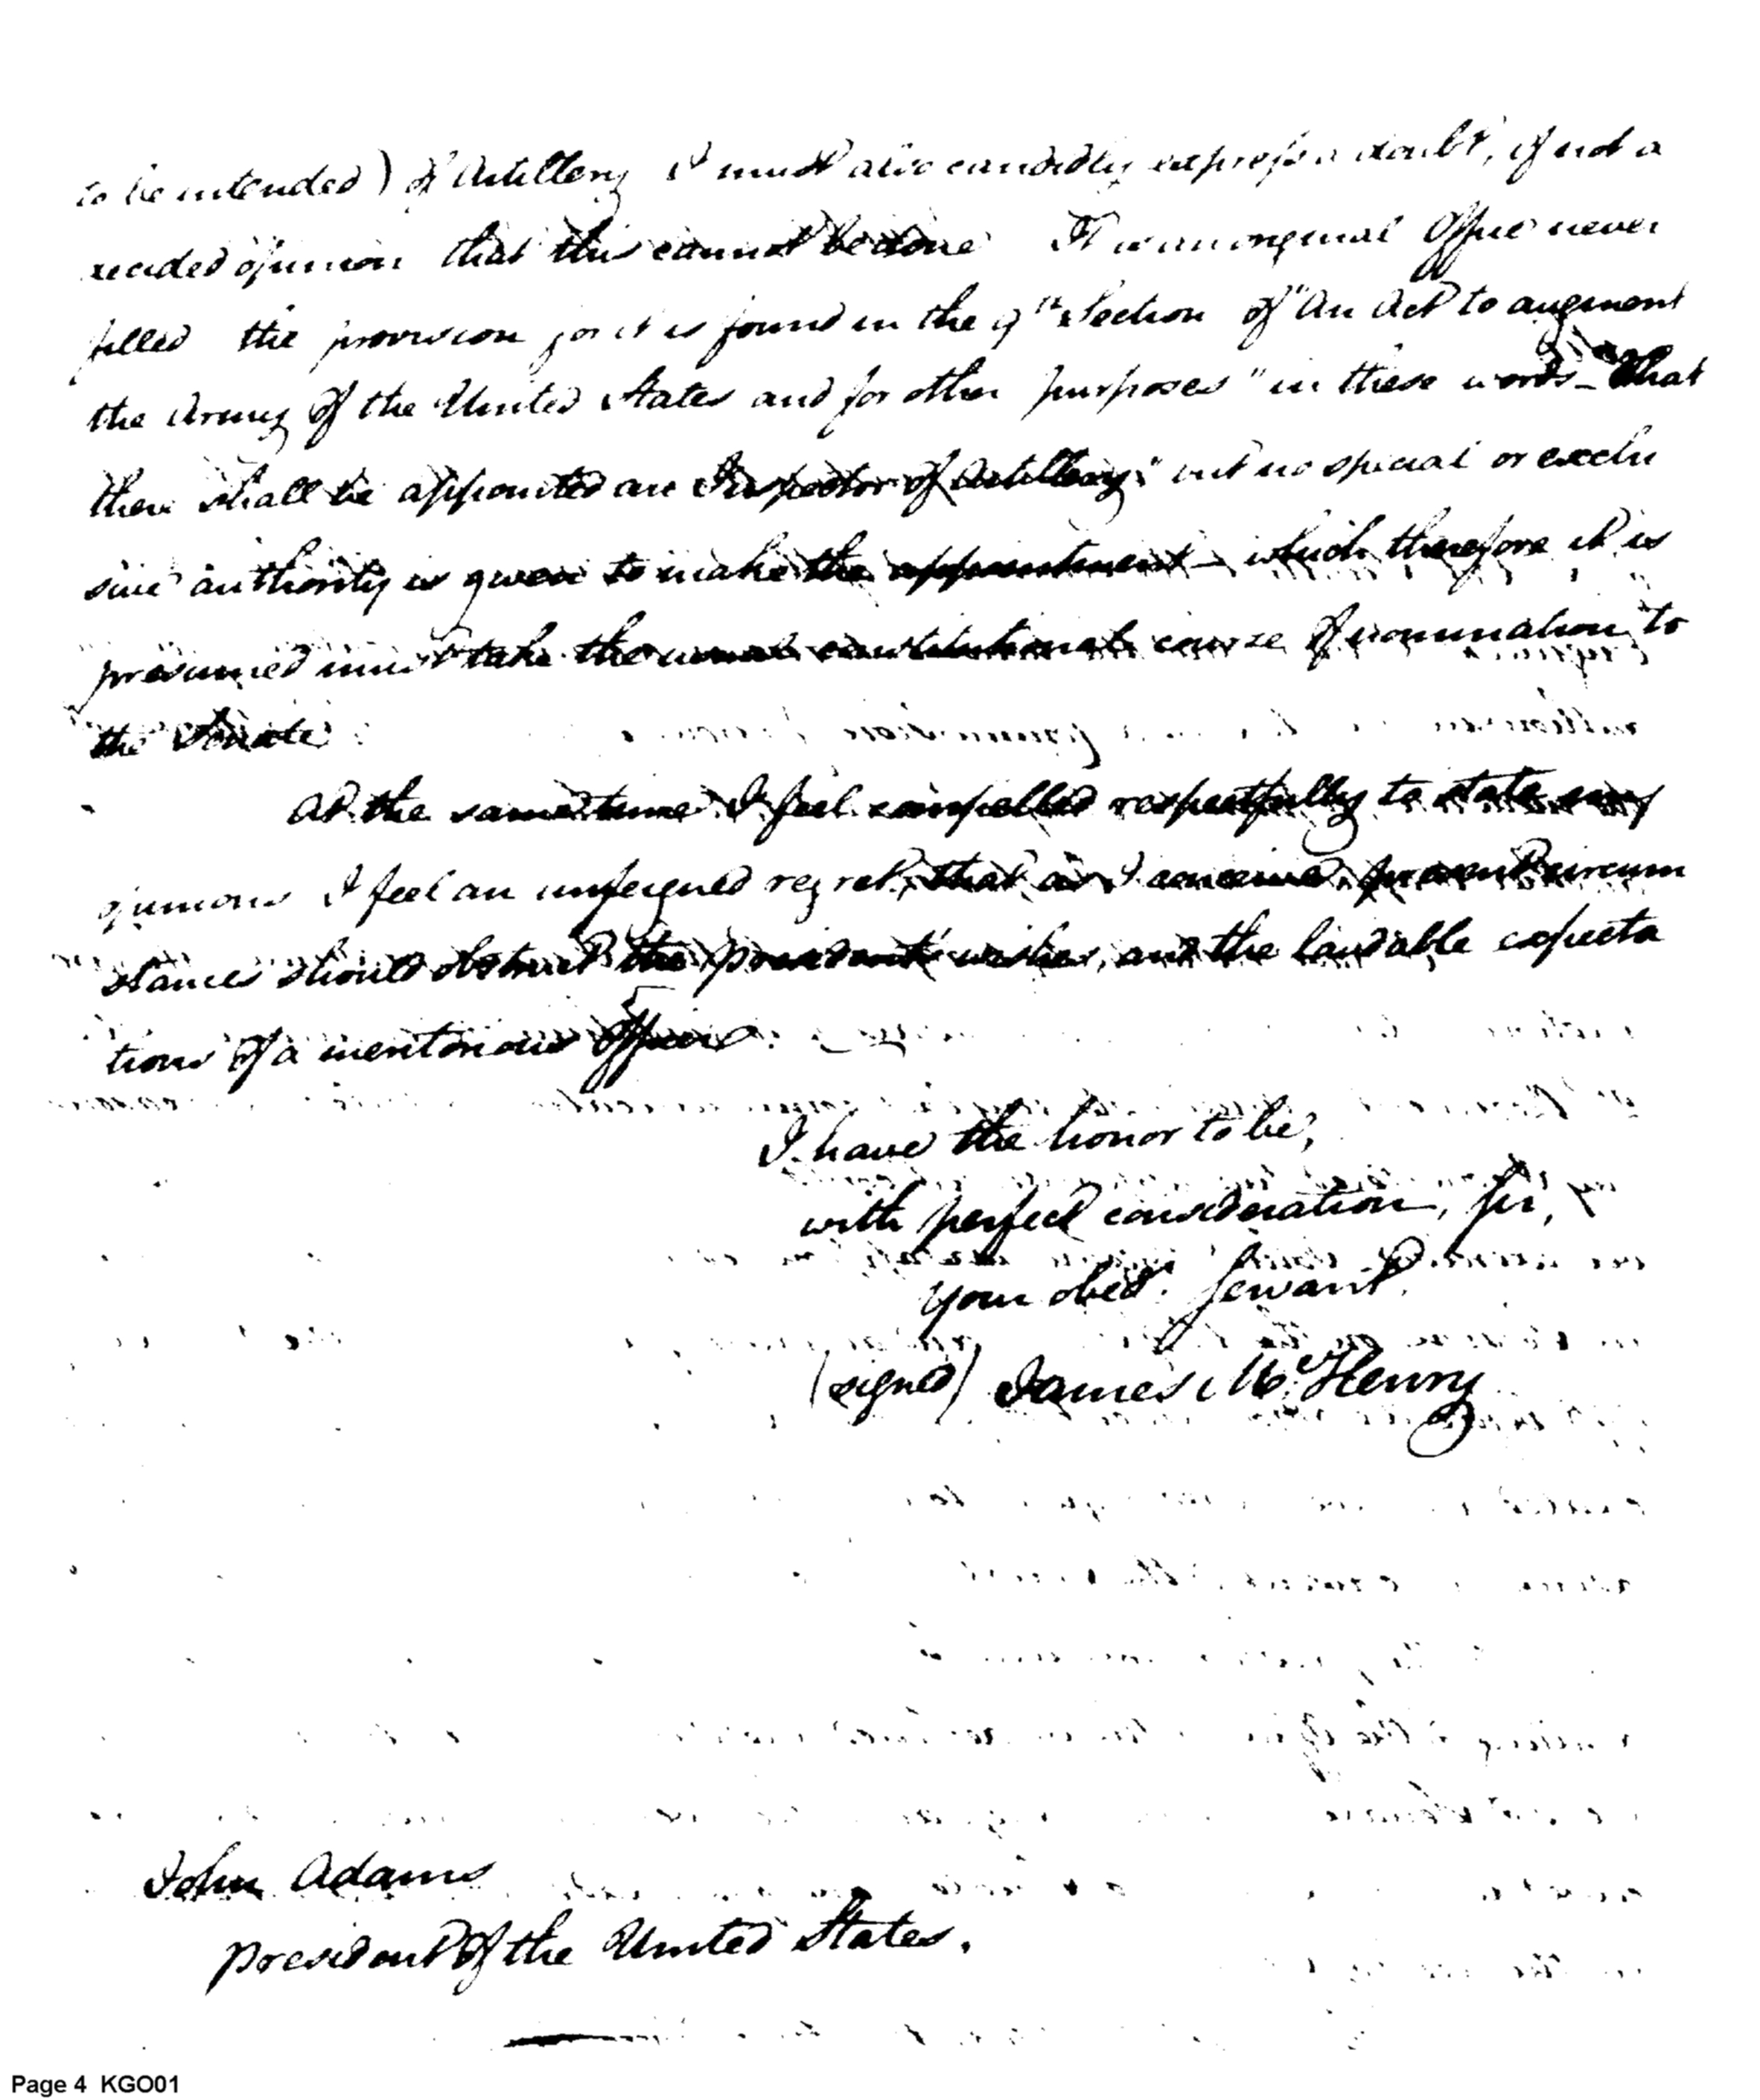 to be intended) of Artillery I must also candidly express a doubt, if not a
decided opinion that this cannot be done It is an original Office never
filled the provision for it is found in the 9th Section of "An Act to augment
the Army of the United States and for other purposes" in these words – "That
there shall be appointed an Inspector of Artillery;" but no special or exclu
sive authority is given to make the appointment – which therefore it is
presumed must take the usual constitutional course of nomination to
the Senate.
At the same time I feel compelled respectfully to state my
opinions I feel an unfeigned regret, that as I conceive, present circum
stances should obstruct the presidents wishes, and the laudable expecta
tions of a meritorious Officer.
I have the honor to be,
with perfect consideration, Sir,
your obedt. Servant.
(signed) James McHenry
John Adams
president of the United States.
Page 4 KGO01